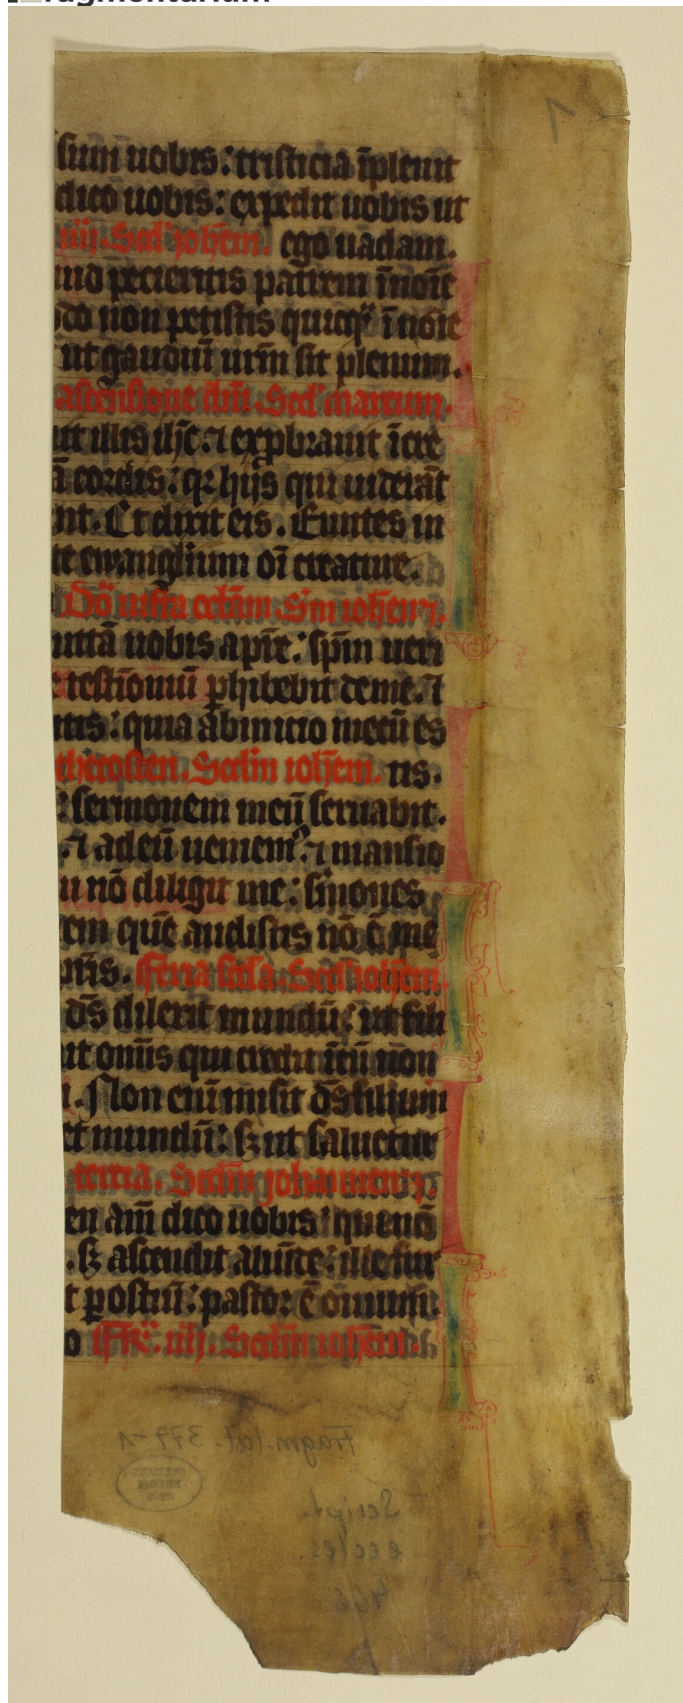 fragmentarium
1
sum uobis: tristicia īpleuit
dico uobis: expedit uobis ut
iiij. Scd' ioh̄em. ego uadam.
uid pecieritis patrem ī noīe
do non petistis quicq ī noīe
ut gaudiū ur̄m sit plenum.
ascensione dn̄i. Scd' marcum.
it illis ih̄c. ⁊ exprobrauit īcre
ā cordis: qꝛ hijs qui uiderāt
nt. Et dixit eis. Euntes in
te ewanglium oī creature.
Dō infra octām. Sm̄ iohem.
ittā uobis a pr̄e: sp̄m ueri
testīoniū phibebit de me. ⁊
itis: quia ab inicio mecū es
thecosten. Scd̄m ioh̄em. tis.
sermonem meū seruabit.
⁊ ad eū ueniem⁹. ⁊ mansio
ui nō diligit me: s̄mones
em quē audistis nō ē me
pr̄is. Feria sc̄da. Scd' ioh̄em.
ds̄ dilexit mundū: ut fili
ut om̄is qui credit ī eū non
i. Non eni misit ds̄ filium
et mundū: sꝫ ut saluetur
tercia. Scd̄m johannem.
en am̄ dico uobis: qui nō
. sꝫ ascendit aliūde: ille fur
t p ostiū: pastor ē ouium.
o Fr̄. iiij. Scd̄m ioh̄em.
Fragm. lat. 377-1
Script.
eccles.
466